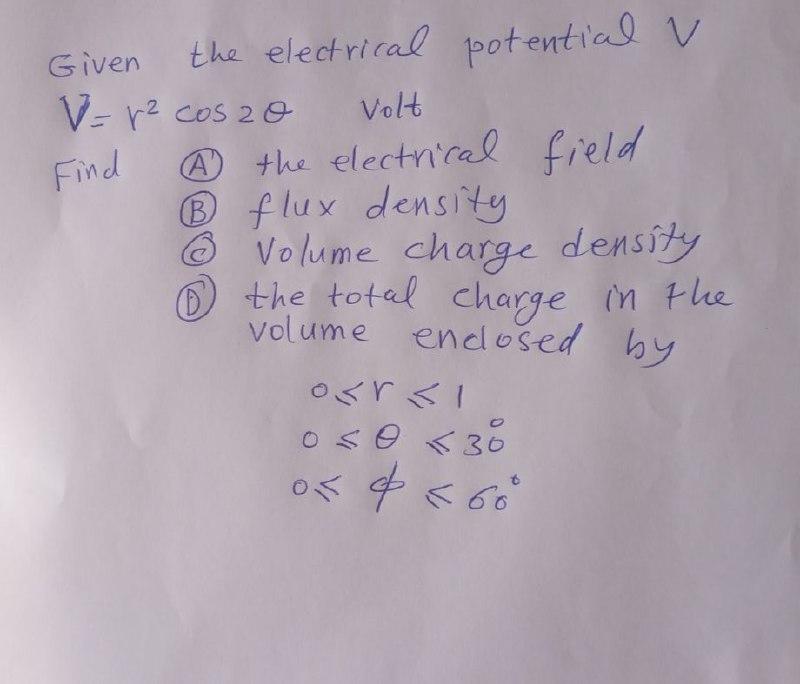 Given the electrical potential V
V= r² cos 2θ Volt
Find Ⓐ the electrical field
Ⓑ flux density
Ⓒ Volume charge density
Ⓓ the total charge in the
volume enclosed by
0 ≤ r ≤ 1
0 ≤ θ ≤ 30°
0 ≤ ϕ ≤ 60°